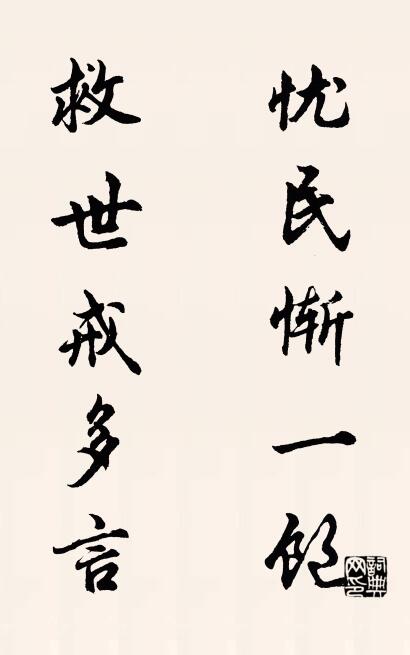 忧民惭一饱
救世戒多言
詞典
网印